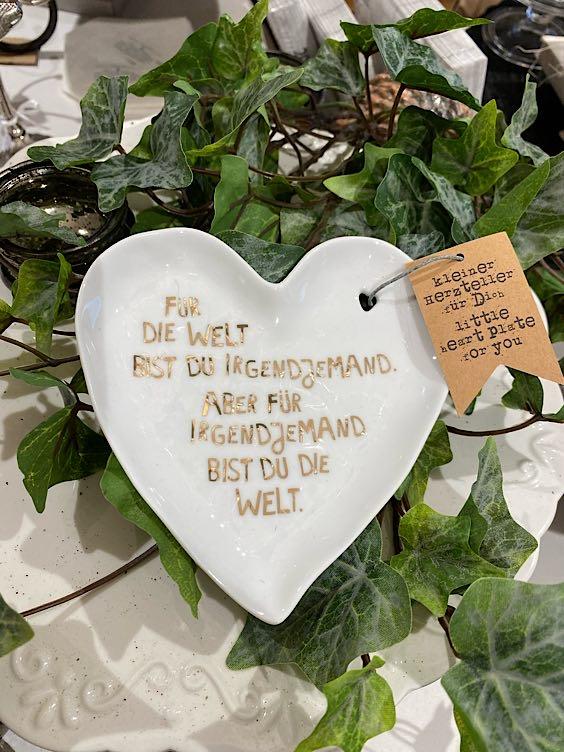 FÜR
DIE WELT
BIST DU IRGENDJEMAND.
ABER FÜR
IRGENDJEMAND
BIST DU DIE
WELT.
kleiner
Herzteller
für Dich
little
heart plate
for you